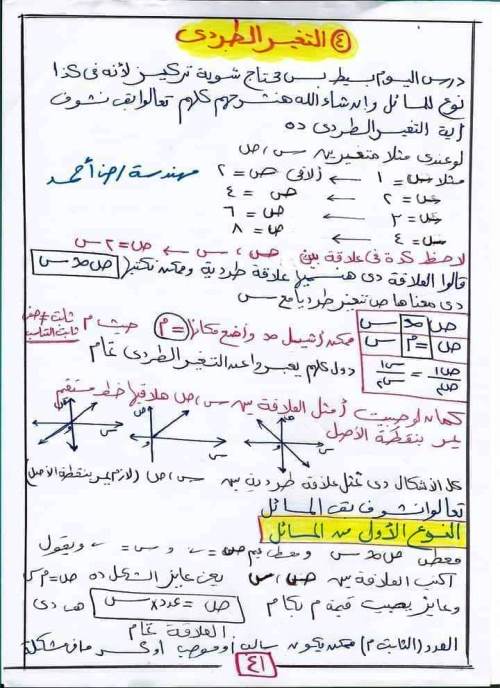 ④ التغير الطردى
درس اليوم بسيط بس محتاج شوية تركيز لأنه فى كذا
نوع للمسائل وإن شاء الله هنشرحهم كلهم تعالوا بقى نشوف
إية التغير الطردى ده
لو عندى مثلا متغيرين س ، ص
مثلا س = ١ ← ألاقى ص = ٢
مهندسة / رضا أحمد
س = ٢ ← ص = ٤
س = ٣ ← ص = ٦
س = ٤ ← ص = ٨
لاحظ كدة فى علاقة بين ص ، س ← ص = ٢ س
قالوا العلاقة دى هنسميها علاقة طردية وممكن نكتبها ص ∝ س
دى معناها ص تتغير طرديا مع س
ص ∝ س
ص = م س
ص١ / ص٢ = س١ / س٢
ممكن أشيل ∝ وأضع مكانها = م حيث م ثابت ≠ صفر
ثابت التناسب
دول كلهم يعبروا عن التغير الطردى تمام
كمان لو حبيت أمثل العلاقة بين س ، ص هلاقيها خط مستقيم
يمر بنقطة الأصل
ص
س
و
ص
س
و
ص
س
و
كل الأشكال دى تمثل علاقة طردية بين س ، ص (لازم يمر بنقطة الأصل)
تعالوا نشوف بقى المسائل
النوع الأول من المسائل
معطى ص ∝ س ومعطى قيم ص = ، و س = ، ويقول
أكتب العلاقة بين ص ، س يعنى عايز الشكل ده ص = م س
وعايز يجيب قيمة م بكام ص = عدد × س هى دى
العلاقة تمام
العدد (الثابت م) ممكن يكون سالب أو موجب أو كسر مافى مشكلة
٤١